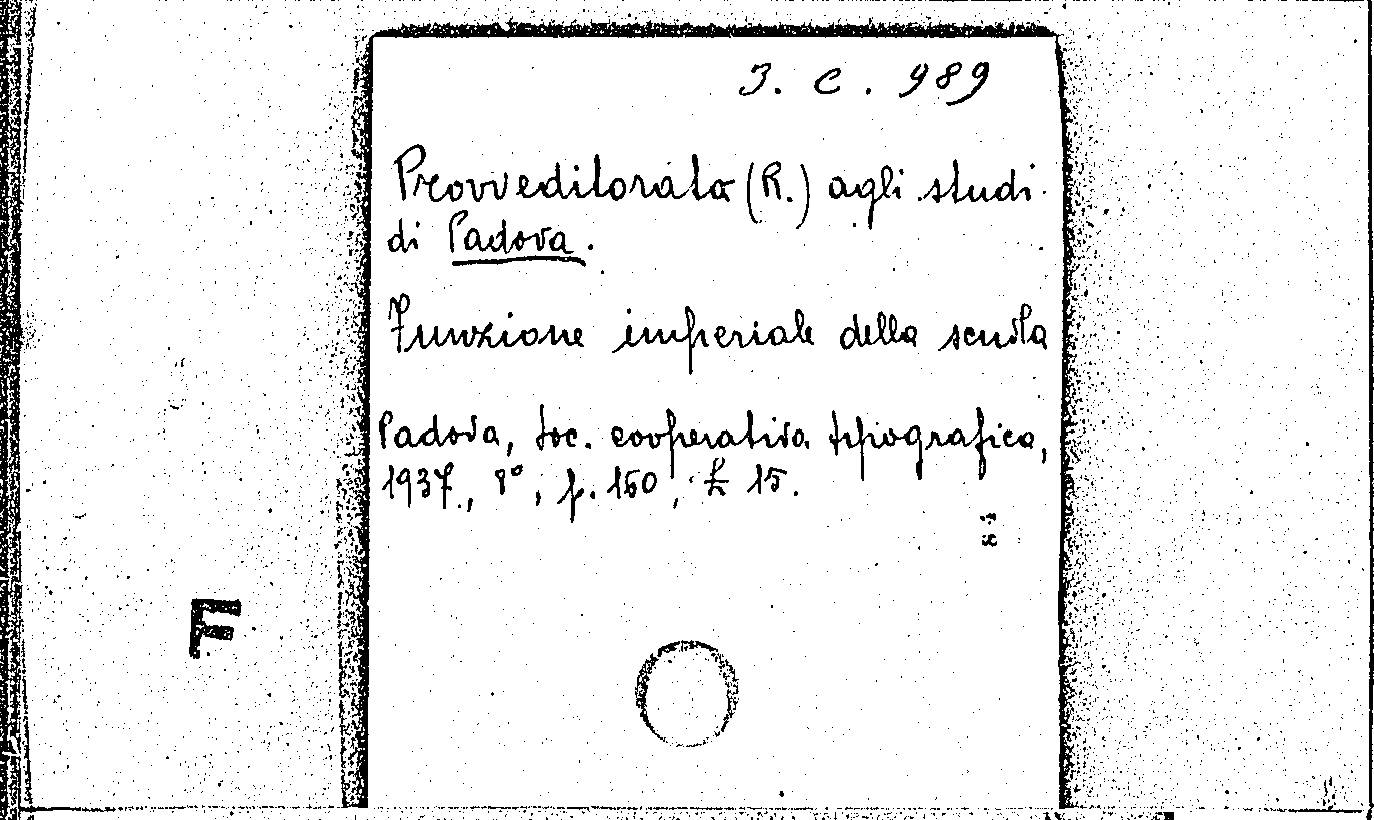 3. C. 989
Provveditorato (R.) agli studi
di Padova.
Funzione imperiale della scuola
Padova, Soc. cooperativa tipografica,
1937., 8°, p. 160, £ 15.
F